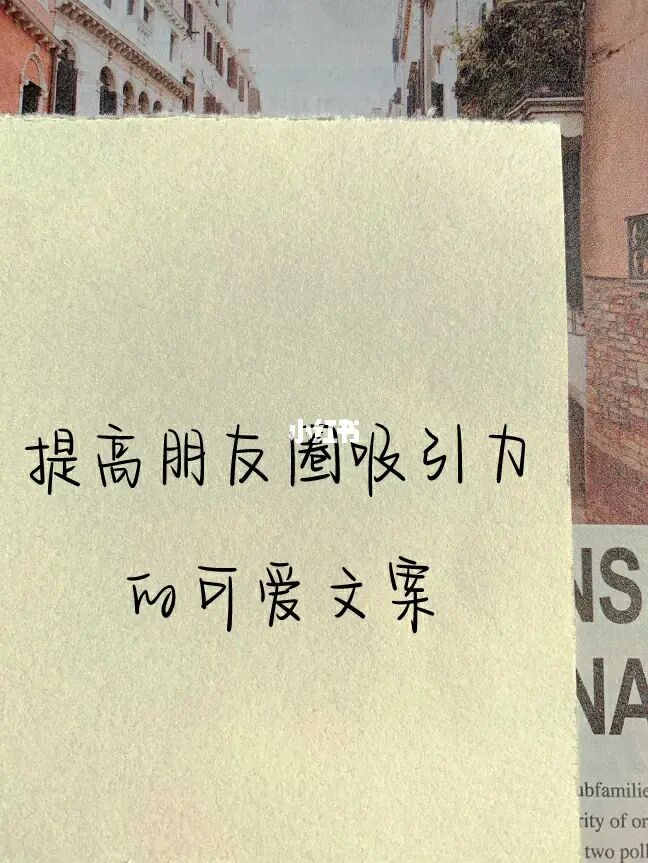 小红书
提高朋友圈吸引力
的可爱文案
NS
NA
ubfamilie
rity of or
two poll